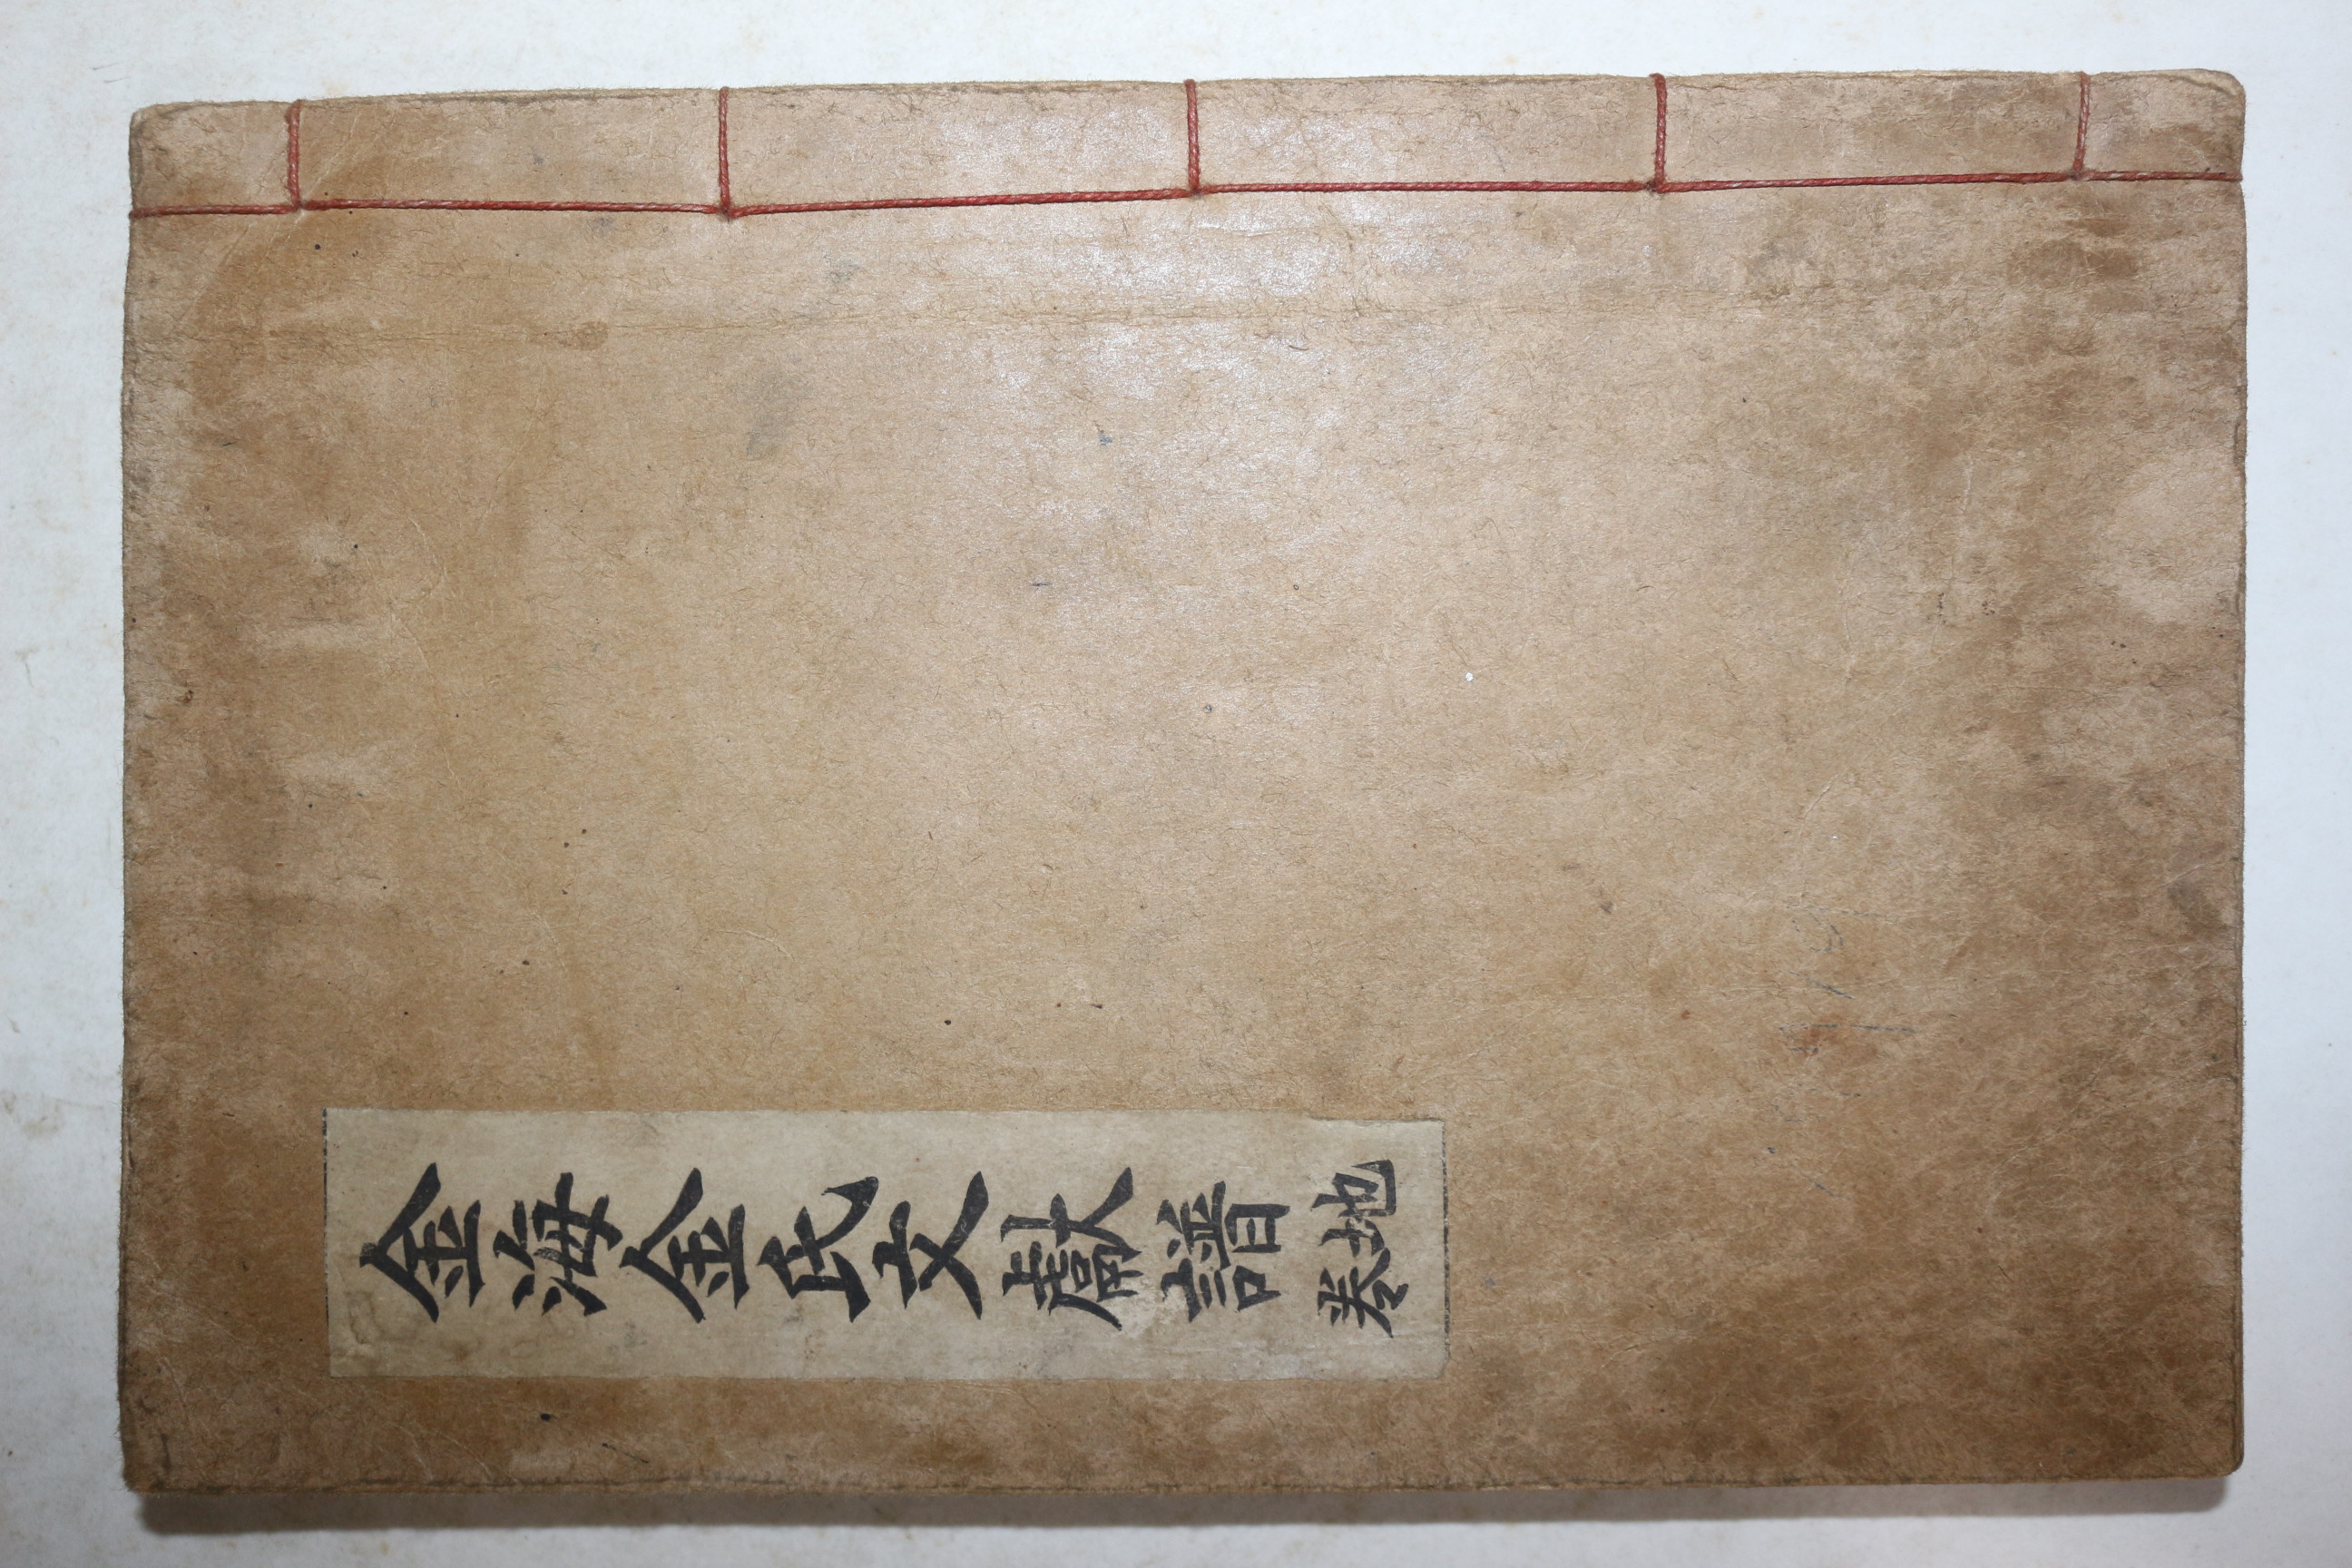 金海金氏文獻譜 地卷